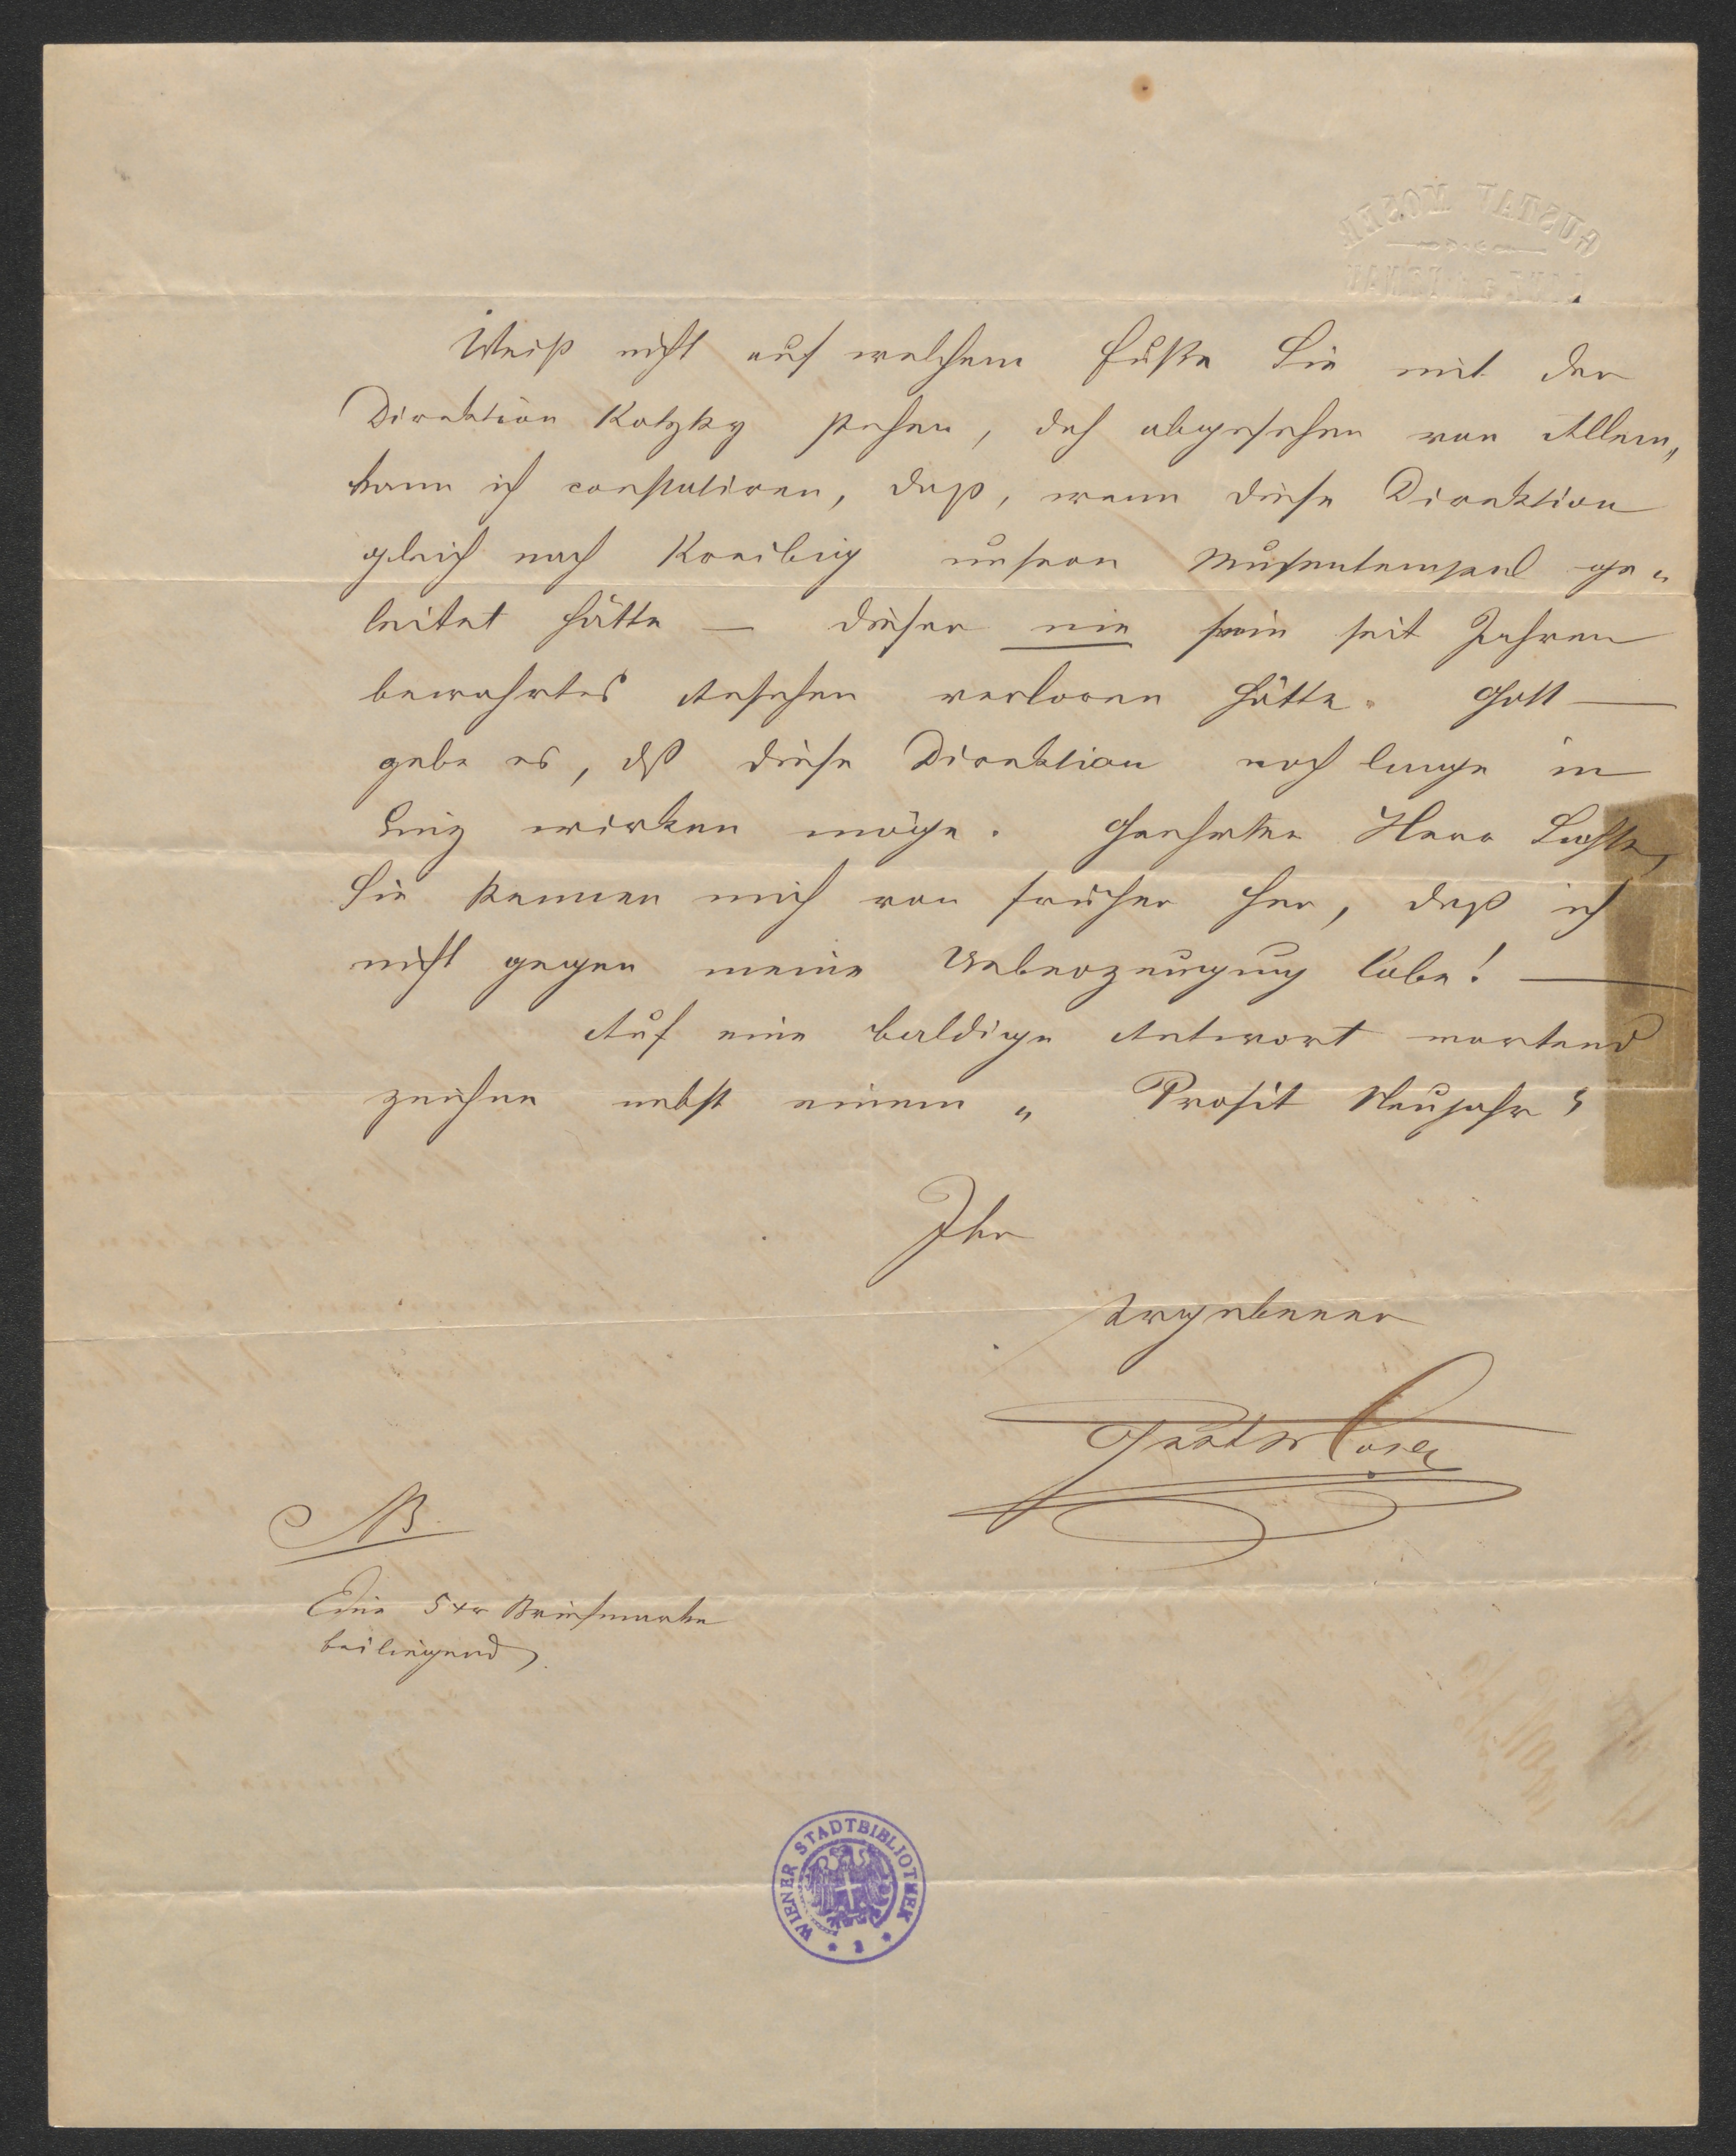 GUSTAV MOSER
LINZ a. d. DONAU
Weiß nicht auf welchem Fuße Sie mit der
Direktion Kotzky stehen, doch abgesehen von Allem,
kann ich constatiren, daß, wenn diese Direktion
gleich nach Kreibig unsern Musentempel ge„
leitet hätte — dieser nie sein seit Jahren
bewahrtes Ansehen verloren hätte. Gott —
gebe es, dß diese Direktion noch lange in
Linz wirken möge. Geehrter Herr
Sie kennen mich von früher her, daß ich
nicht gegen meine Ueberzeugung lobe! —
Auf eine baldige Antwort wartend
zeichne nebst einem „Prosit Neujahr“
Ihr
ergebener
Gustav Moser
NB.
Eine 5 xr Briefmarke
beiliegend.
WIENER STADTBIBLIOTHEK